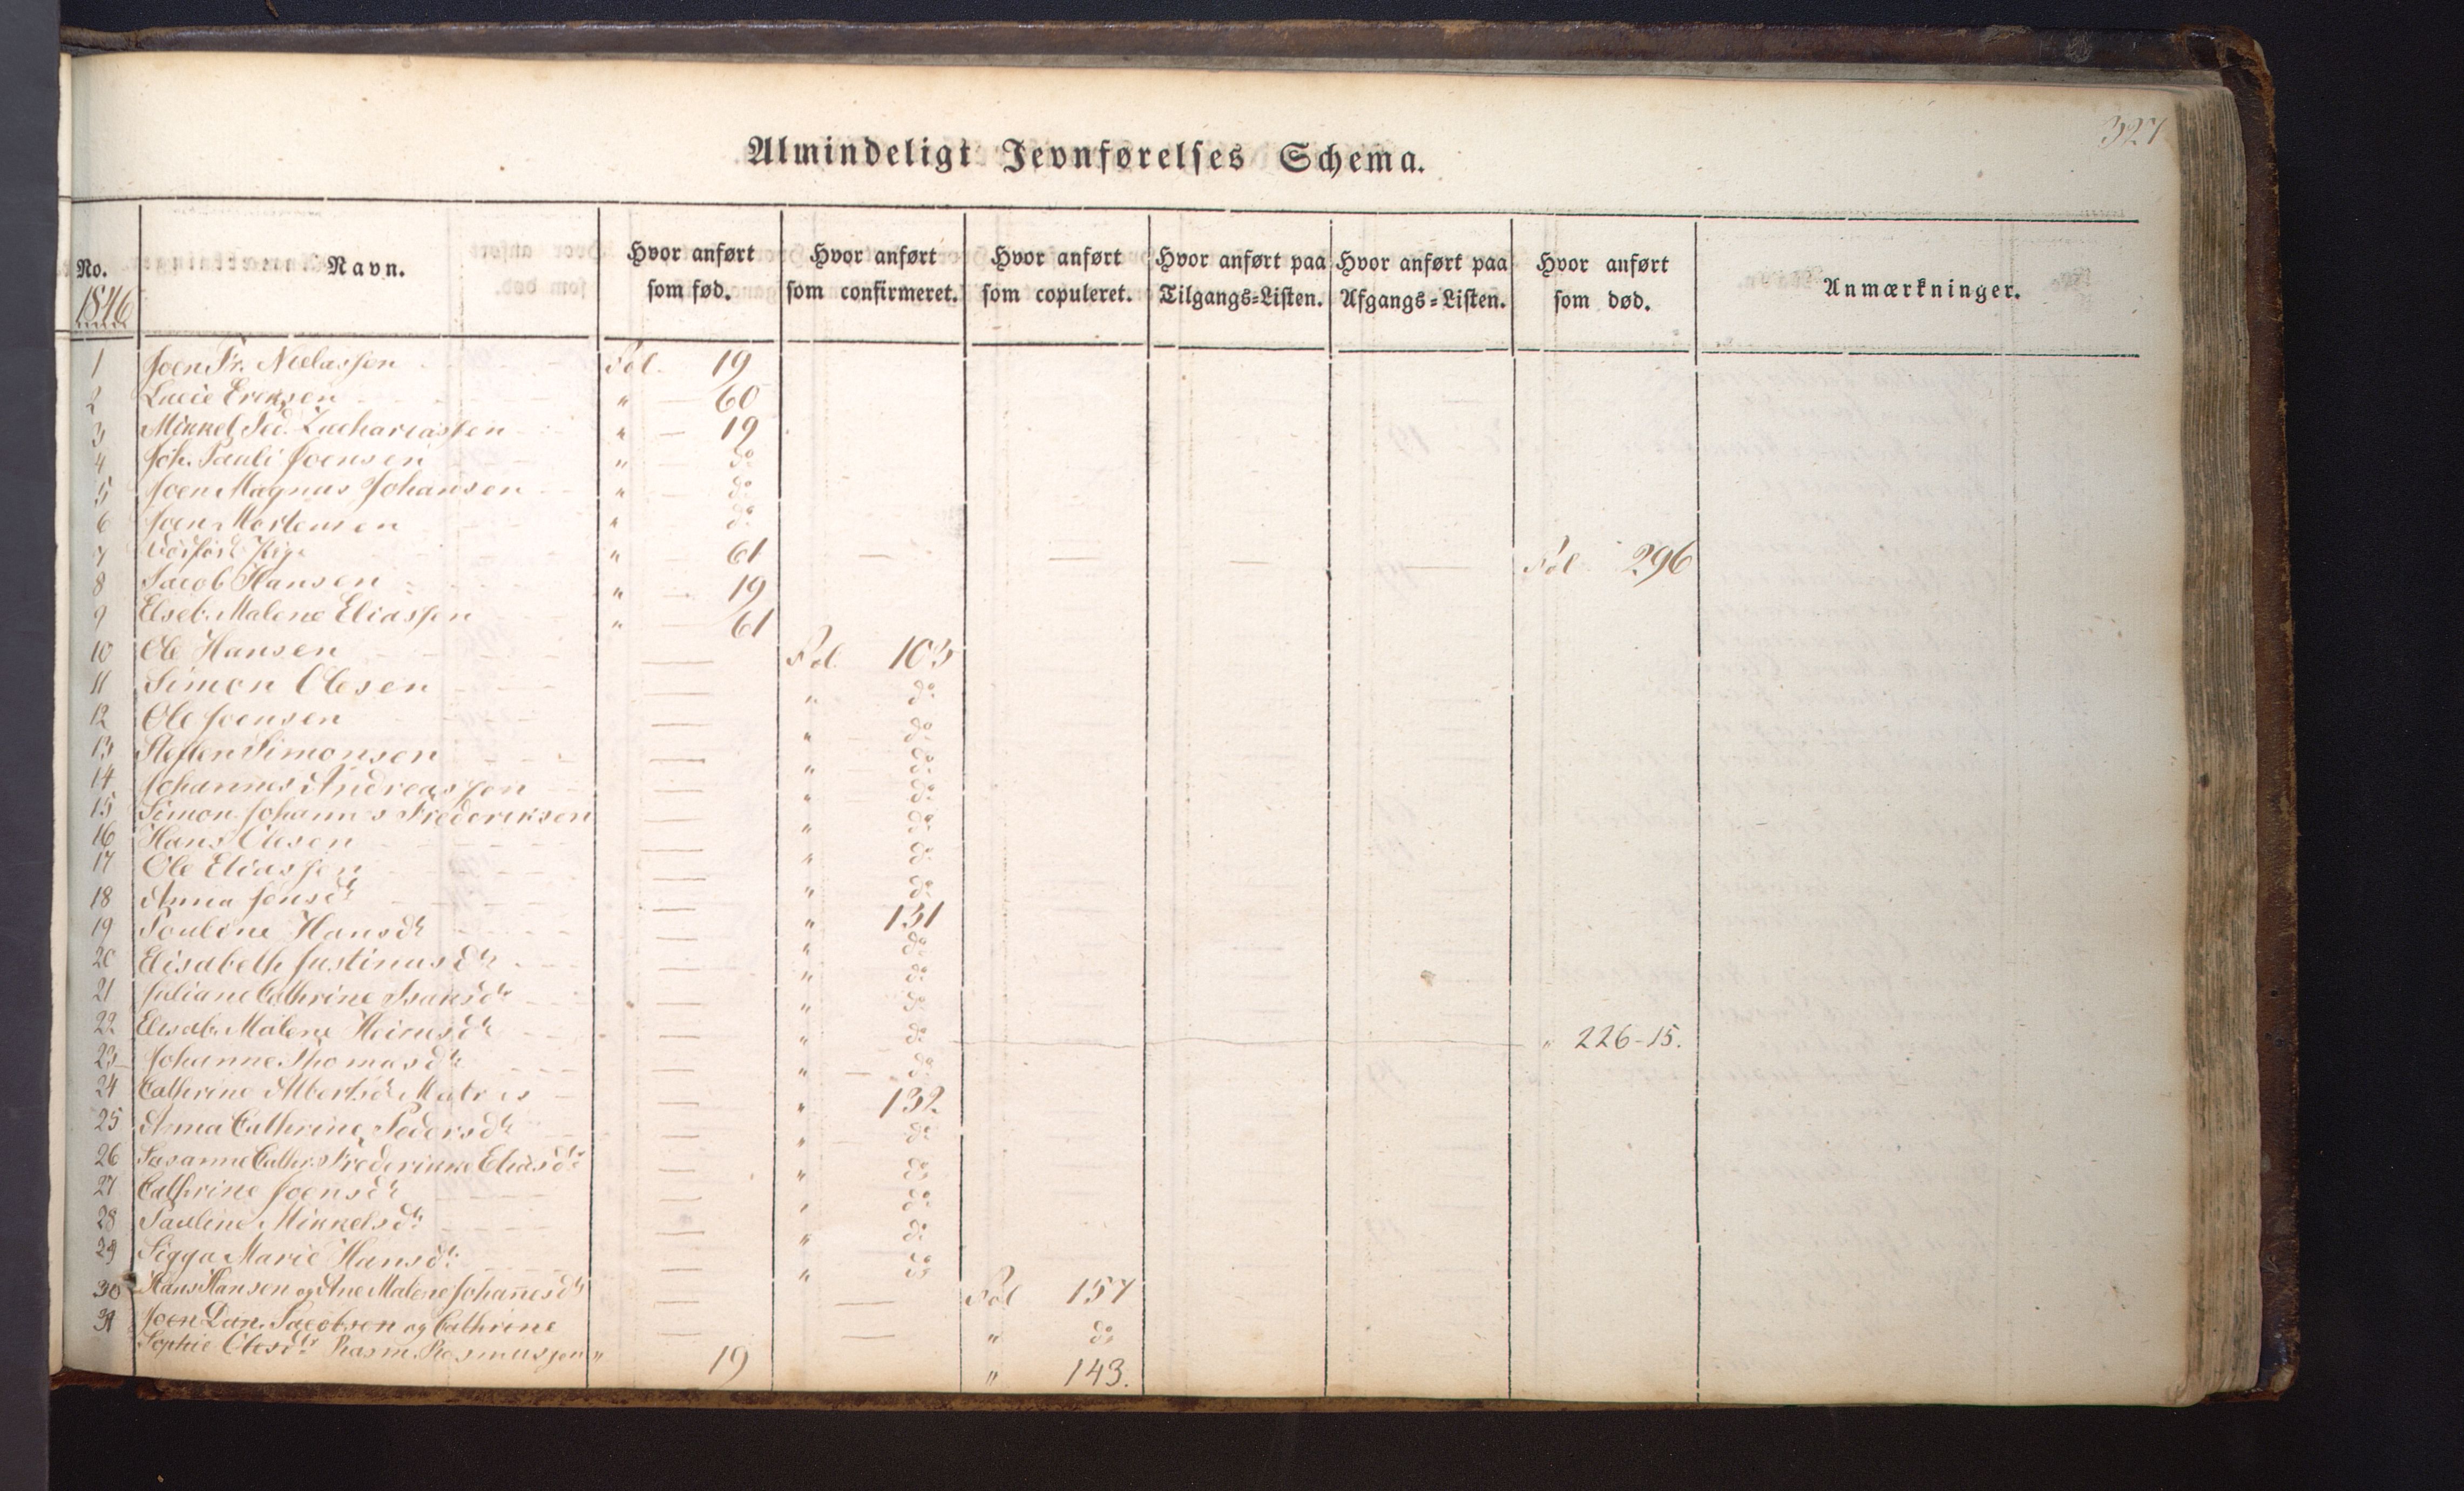 327
Almindeligt Jevnførelses Schema.
No. Navn. Hvor anført som fød. Hvor anført som confirmeret. Hvor anført som copuleret. Hvor anført paa Tilgangs=Listen. Hvor anført paa Afgangs=Listen. Hvor anført som død. Anmærkninger.
1846
1 Joen Fr. Nielassen Fol. 19
2 Lucie Eriksen " — 60
3 Mikkel Ped. Zachariassen " — 19
4 Joh. Pauli Joensen " — do
5 Joen Magnus Johansen " — do
6 Joen Mortensen " do
7 Pige " — 61 — — — — Fol 296
8 Jacob Hansen " — 19
9 Elseb. Malene Eliassen " — 61
10 Ole Hansen — Fol. 103
11 Simon Olesen — " do
12 Ole Joensen — " do
13 Steffen Simonsen — " do
14 Johannes Andreassen — " do
15 Simon Johannes Frederiksen — " do
16 Hans Olesen — " do
17 Ole Eliassen — " do
18 Anna Jensdr — " 131
19 Pouline Hansdr — " do
20 Elisabeth Justinusdr — " do
21 Juliane Cathrine Isaksdr — " do
22 Elisab. Malene Heinesdr — " do " 226-15.
23 Johanne Thomasdr — " — do
24 Cathrine Albertsdr Matras — " 132.
25 Anna Cathrine Pedersdr — " do
26 Susanne Cathr. Frederikke Eliasdr — " do
27 Cathrine Joensdr — " do
28 Pauline Mikkelsdr — " do
29 Sigga Marie Hansdr — " do
30 Hans Hansen og Ane Malene Johannesdr — — Fol 157
31 Joen Dan. Jacobsen og Cathrine — — " do
Sophie Olesdr Rasm. Rasmussen " 19 " 143.